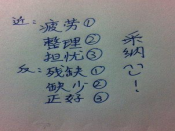 近：疲劳①
整理②
担忧③
反：残缺①
缺少②
正好③
采纳
！